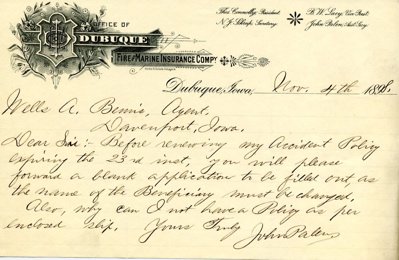 OFFICE OF
DUBUQUE
FIRE and MARINE INSURANCE COMP'Y
Thos Connolly, President.
N. J. Schrup, Secretary.
B. W. Lacy, Vice Prest.
Dubuque, Iowa, Nov. 4th
Wells A. Agent,
Davenport, Iowa.
Dear Sir:- Before renewing my Accident Policy
expiring the 23rd inst, you will please
forward a blank application to be filled out, as
the name of the Beneficiary must be changed.
Also, why can I not have a Policy as per
enclosed slip. Yours Truly
John